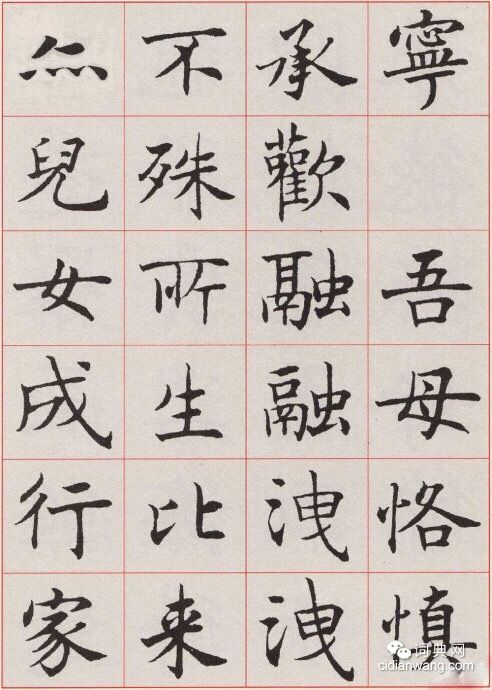 寧吾母恪慎
承歡融融洩洩
不殊所生比来
兒女成行家
词典网
cidianwang.com